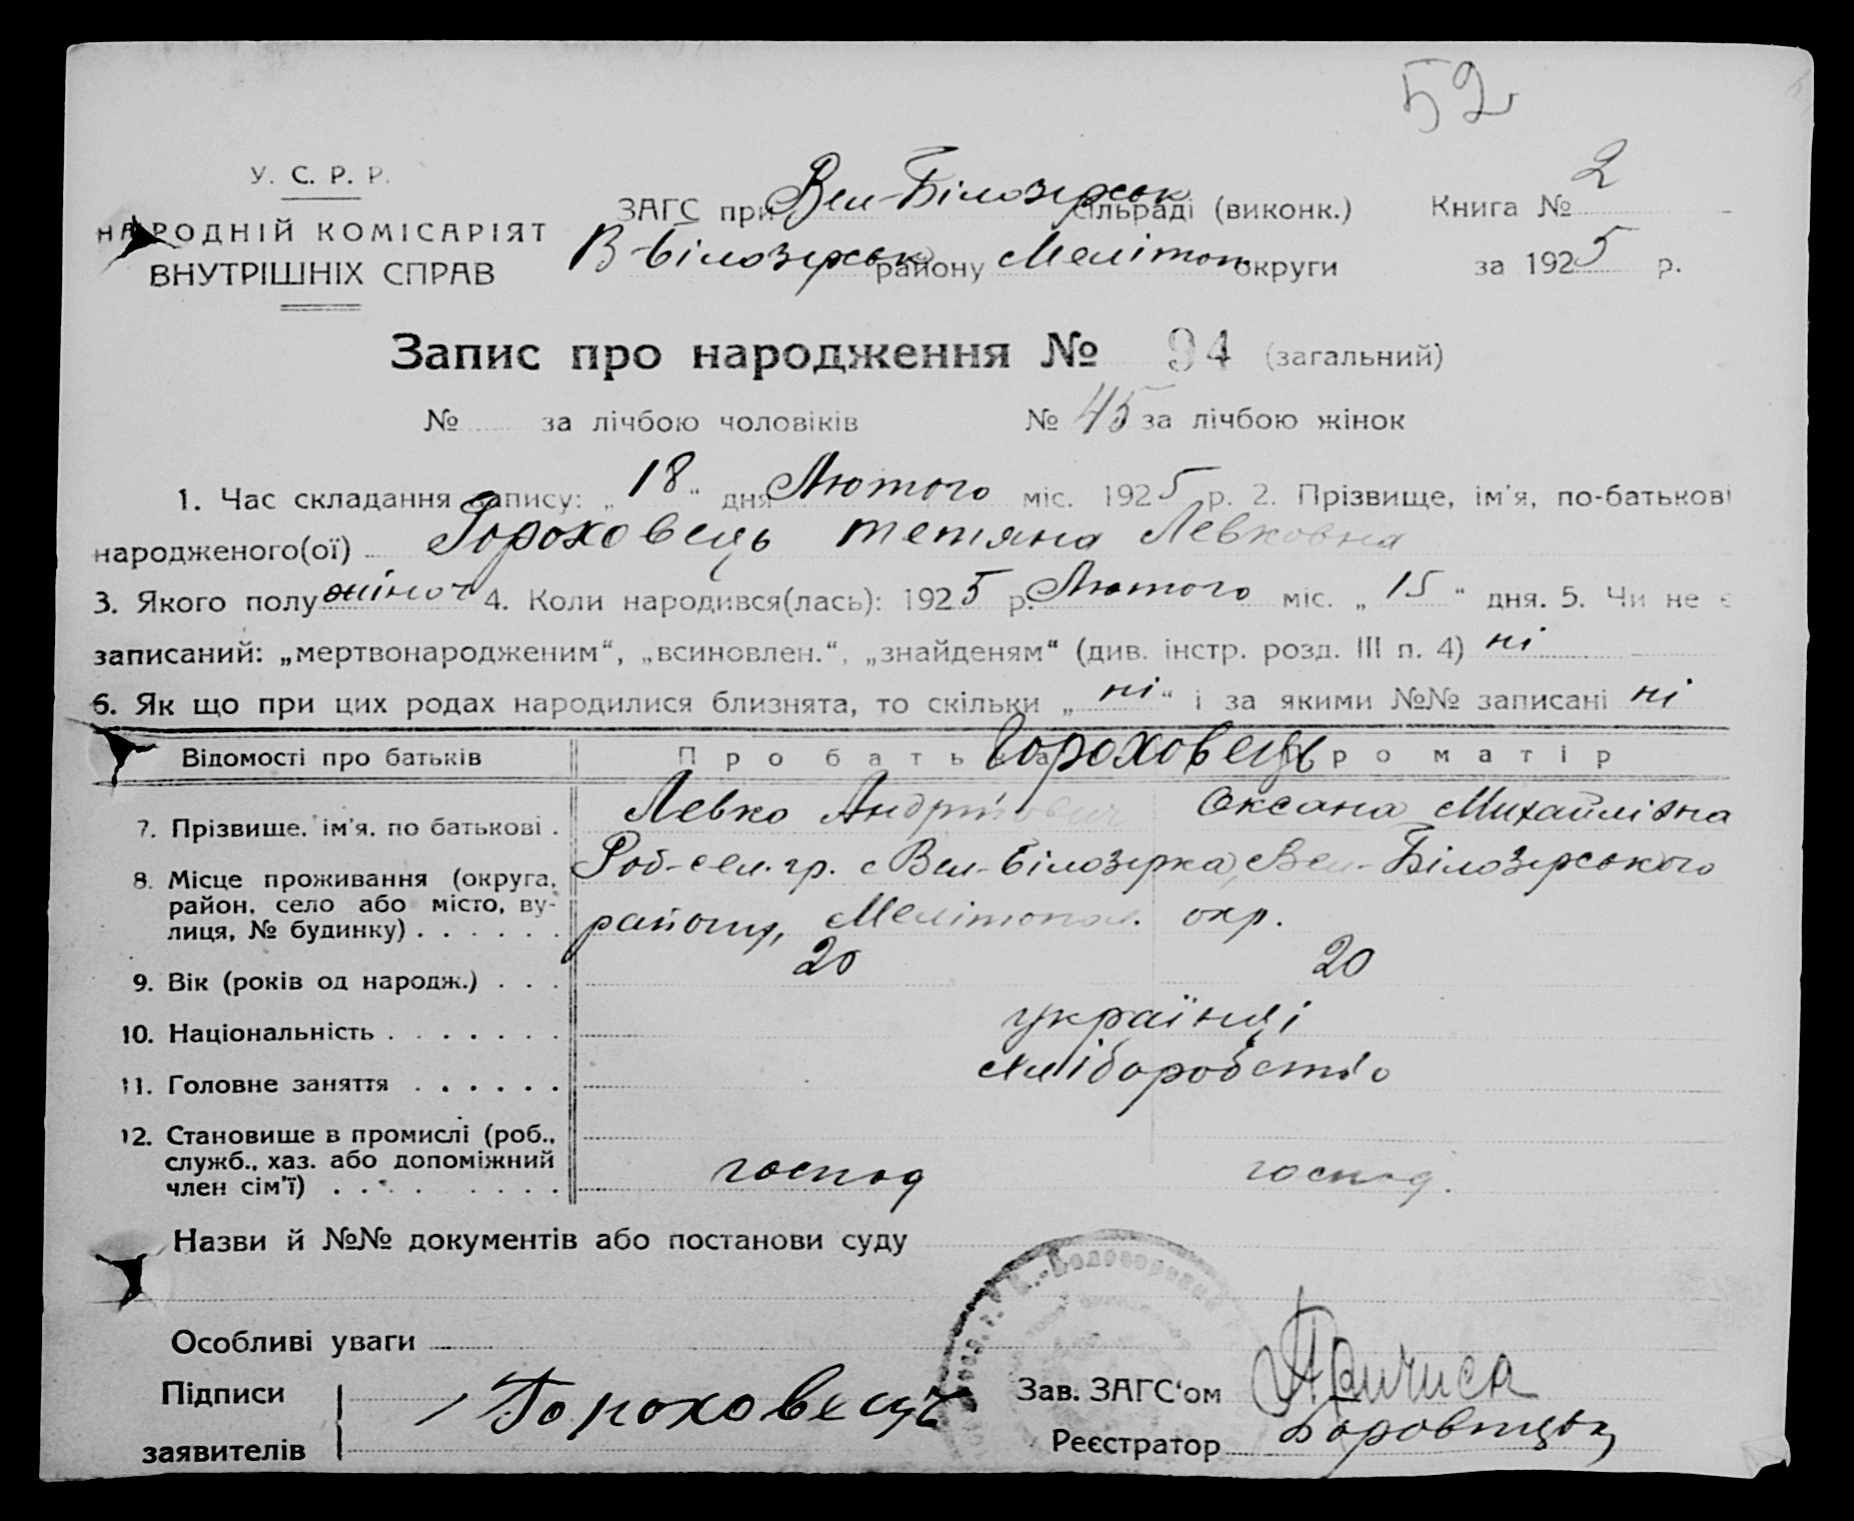 52
У. С. Р. Р.
НАРОДНІЙ КОМІСАРІЯТ
ВНУТРІШНІХ СПРАВ
ЗАГС при Вел-Білозерськ сільраді (виконк.) Книга № 2
В-Білозерськ району Мелітоп. округи за 1925 р.
Запис про народження № 94 (загальний)
№ за лічбою чоловіків № 45 за лічбою жінок
1. Час складання запису: „18" дня Лютого міс. 1925 р. 2. Прізвище, ім'я, по-батькові
народженого(ої) Гороховець Тетяна Левковна
3. Якого полу жіноч 4. Коли народився(лась): 1925 р. Лютого міс. „15" дня. 5. Чи не є
записаний: „мертвонародженим", „всиновлен.", „знайденям" (див. інстр. розд. III п. 4) ні
6. Як що при цих родах народилися близнята, то скільки „ні" і за якими №№ записані ні
Відомості про батьків Про батька Про матір
Гороховець
7. Прізвище, ім'я, по батькові . Левко Андрійович Оксана Михайлівна
8. Місце проживання (округа, район, село або місто, ву-лиця, № будинку) . . . . . . Роб-сел.гр. с Вел-Білозерка, Вел-Білозерського
району, Мелітопол. окр.
9. Вік (років од народж.) . . . 20 20
10. Національність . . . . . . . українці
11. Головне заняття . . . . . . хліборобство
12. Становище в промислі (роб., служб., хаз. або допоміжний член сім'ї) . . . . . . . . господ господ.
Назви й №№ документів або постанови суду
Особливі уваги
Підписи
заявителів
Гороховець
Зав. ЗАГС'ом
Реєстратор